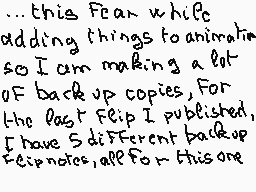 ...this fear while
adding things to animation
so I am making a lot
of back up copies, for
the last flip I published,
I have 5 different backup
flipnotes, all for this one